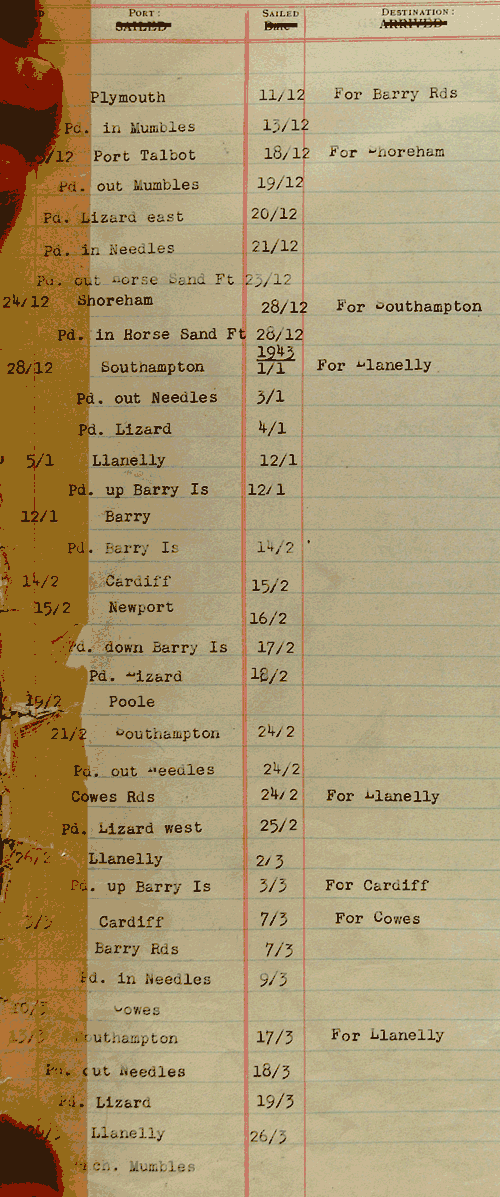 PORT: SAILED DESTINATION:
SAILED Date ARRIVED
Plymouth 11/12 For Barry Rds
Pd. in Mumbles 13/12
/12 Port Talbot 18/12 For Shoreham
Pd. out Mumbles 19/12
Pd. Lizard east 20/12
Pd. in Needles 21/12
Pd. out Horse Sand Ft 23/12
24/12 Shoreham 28/12 For Southampton
Pd. in Horse Sand Ft 28/12
1943
28/12 Southampton 1/1 For Llanelly
Pd. out Needles 3/1
Pd. Lizard 4/1
5/1 Llanelly 12/1
Pd. up Barry Is 12/1
12/1 Barry
Pd. Barry Is 14/2
14/2 Cardiff 15/2
15/2 Newport 16/2
Pd. down Barry Is 17/2
Pd. Lizard 18/2
19/2 Poole
21/2 Southampton 24/2
Pd. out Needles 24/2
Cowes Rds 24/2 For Llanelly
Pd. Lizard west 25/2
26/2 Llanelly 2/3
Pd. up Barry Is 3/3 For Cardiff
3/3 Cardiff 7/3 For Cowes
Barry Rds 7/3
Pd. in Needles 9/3
10/3 Cowes
13/3 Southampton 17/3 For Llanelly
Pd. out Needles 18/3
Pd. Lizard 19/3
Llanelly 26/3
Mumbles